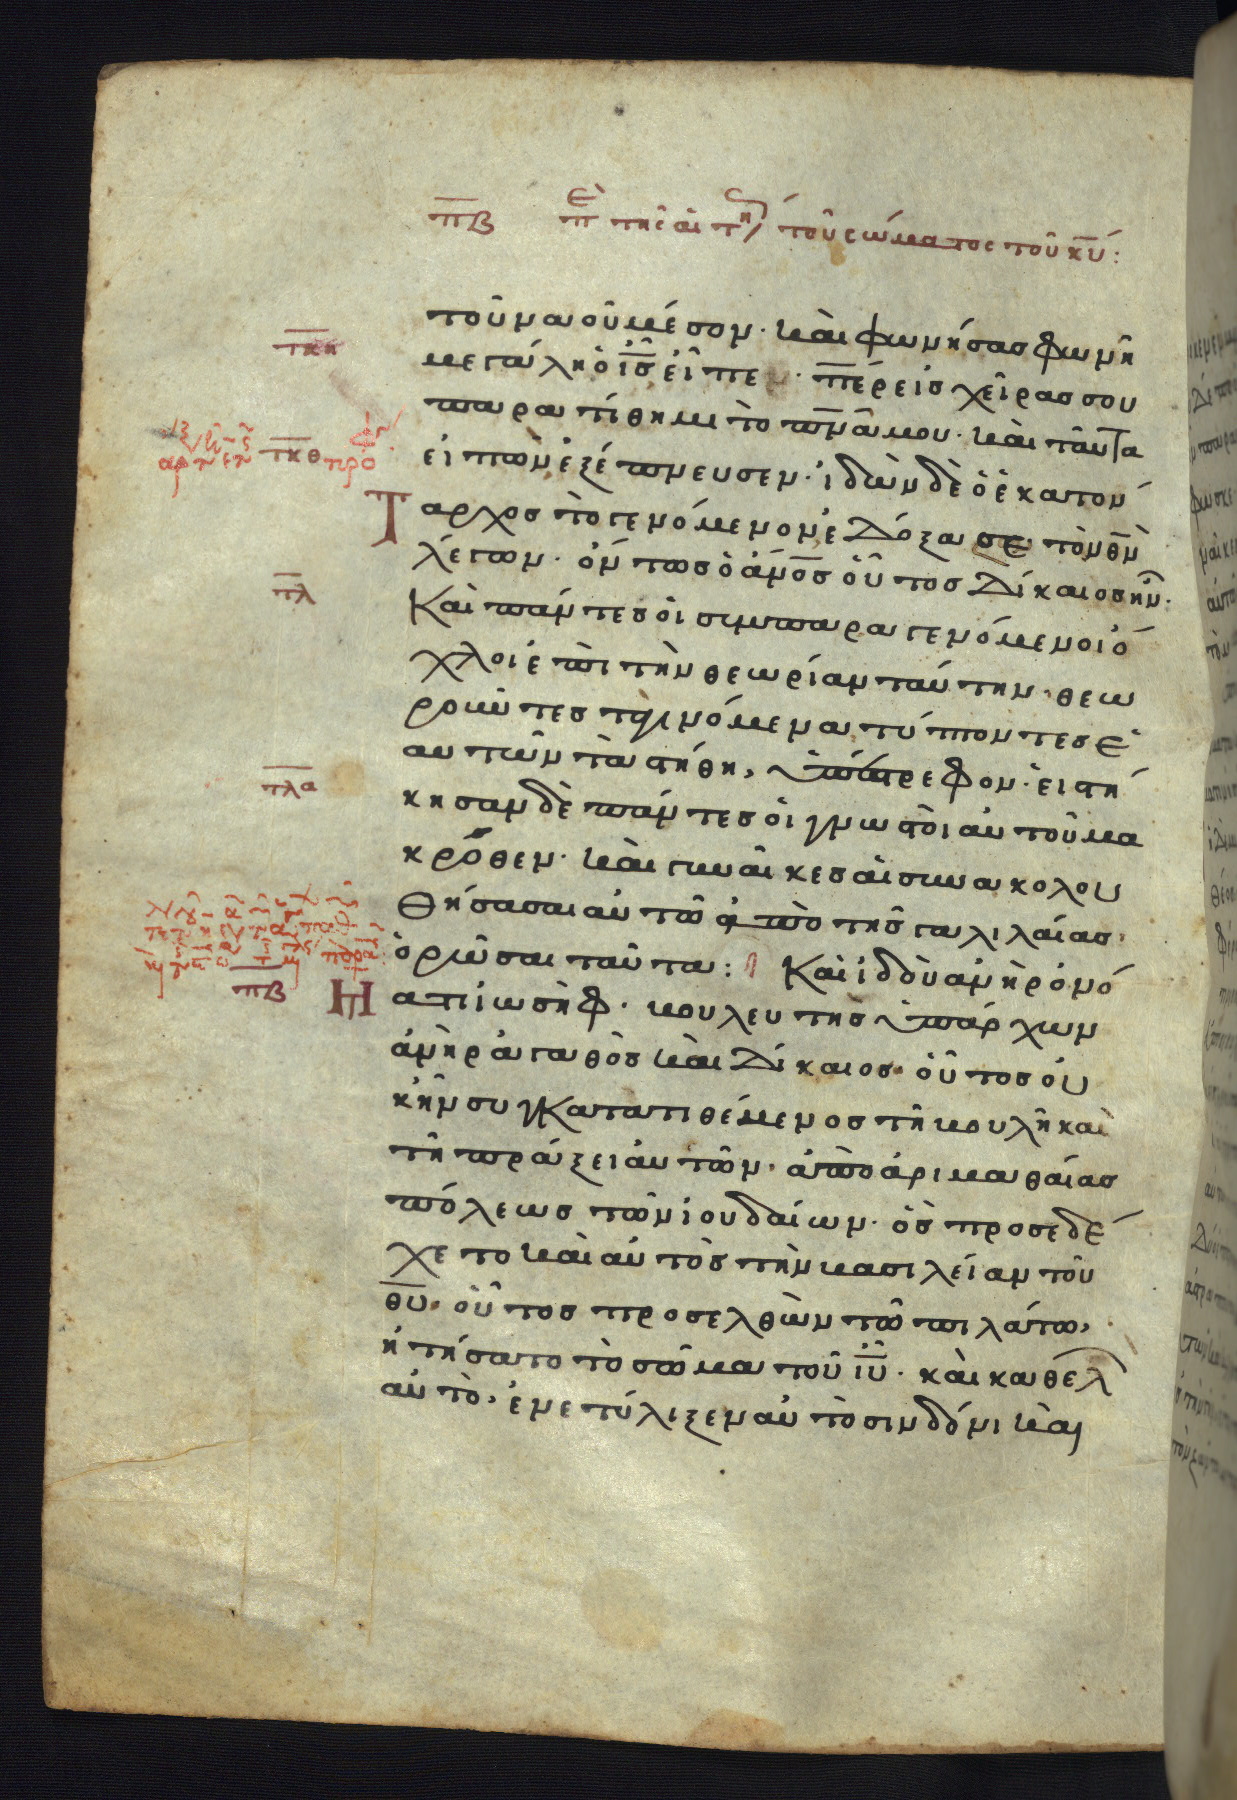 πβ Π(ε) τῆς αἰτή(σ) τοῦ σώματος τοῦ κ̅υ̅:
τοῦ ναοῦ μέσον· καὶ φωνήσας φωνῆ
τκη
μεγάλη ὁ ι̅ς̅ εἶπε· π̅ε̅ρ̅ εἰς χεῖρας σου
παρατίθημι τὸ π̅ν̅α̅ μου· καὶ ταῦτα
τκθ
εἰπὼν ἐξέπνευσεν· ἰδὼν δὲ ὁ ἑκατόν
Ταρχος τὸ γενόμενον ἐδόξασε τὸν θ̅ν̅
λέγων· ὄντως ὁ ἄν̅ο̅ς̅ οὗτος δίκαιος ἦν·
τλ
Καὶ πάντες οἱ συμπαραγενόμενοι ὄ
χλοι ἐπὶ τὴν θεωρίαν ταύτην· θεω
ροῦντες τὰ γινόμενα τύπτοντες ἑ
αυτῶν τὰ στήθη, ὑπέστρεφον· εἱστή
τλα
κησαν δὲ πάντες οἱ γνωστοὶ αὐτοῦ μα
κρόθεν· καὶ γυναῖκες αἱ συνακολου
θήσασαι αὐτῶ ἀπὸ τῆς γαλιλαίας·
ὁρῶσαι ταῦτα: Καὶ ἰδοὺ ἀνὴρ ὀνό
πβ
ματι ἰωσὴφ· βουλευτὴς ὑπάρχων
ἀνὴρ ἀγαθὸς καὶ δίκαιος· οὗτος οὐ
κ ἦν συγκατατιθέμενος τῆ βουλῆ καὶ
τῆ πράξει αὐτῶν· ἀπὸ ἀριμαθαίας
πόλεως τῶν ἰουδαίων· ὃς προσεδέ
χετο καὶ αὐτὸς τὴν βασιλείαν τοῦ
θ̅υ̅· οὗτος προσελθὼν τῶ πιλάτω,
ἠτήσατο τὸ σῶμα τοῦ ι̅υ̅· καὶ καθελ
αὐτὸ, ἐνετύλιξεν αὐτὸ σινδόνι καὶ